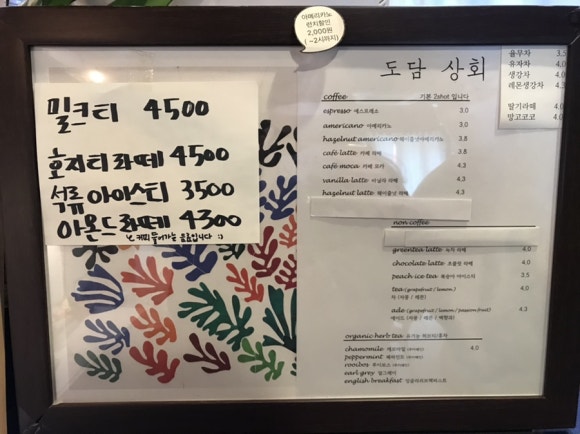 아메리카노
런치할인
2,000원
(~2시까지)
밀크티 4500
호지티라떼 4500
석류 아이스티 3500
아몬드라떼 4300
커피 들어가는 음료입니다 :)
도담 상회
coffee 기본 2shot 입니다
espresso 에스프레소 3.0
americano 아메리카노 3.0
hazelnut americano 헤이즐넛아메리카노 3.8
café latte 카페 라떼 3.8
café moca 카페 모카 4.3
vanilla latte 바닐라 라떼 4.3
hazelnut latte 헤이즐넛 라떼 4.3
non coffee
greentea latte 녹차 라떼 4.0
chocolate latte 초콜릿 라떼 4.0
peach ice tea 복숭아 아이스티 3.5
tea (grapefruit / lemon) 4.0
차 (자몽 / 레몬)
ade (grapefruit / lemon / passion fruit) 4.3
에이드 (자몽 / 레몬 / 백향과)
organic herb tea 유기농 허브티/홍차
chamomile 캐모마일 4.0
peppermint 페퍼민트
rooibos 루이보스
earl grey 얼그레이
english breakfast 잉글리쉬브렉퍼스트
율무차 3.5
유자차 4.0
생강차 4.0
레몬생강차 4.0
딸기라떼
망고코코 4.0